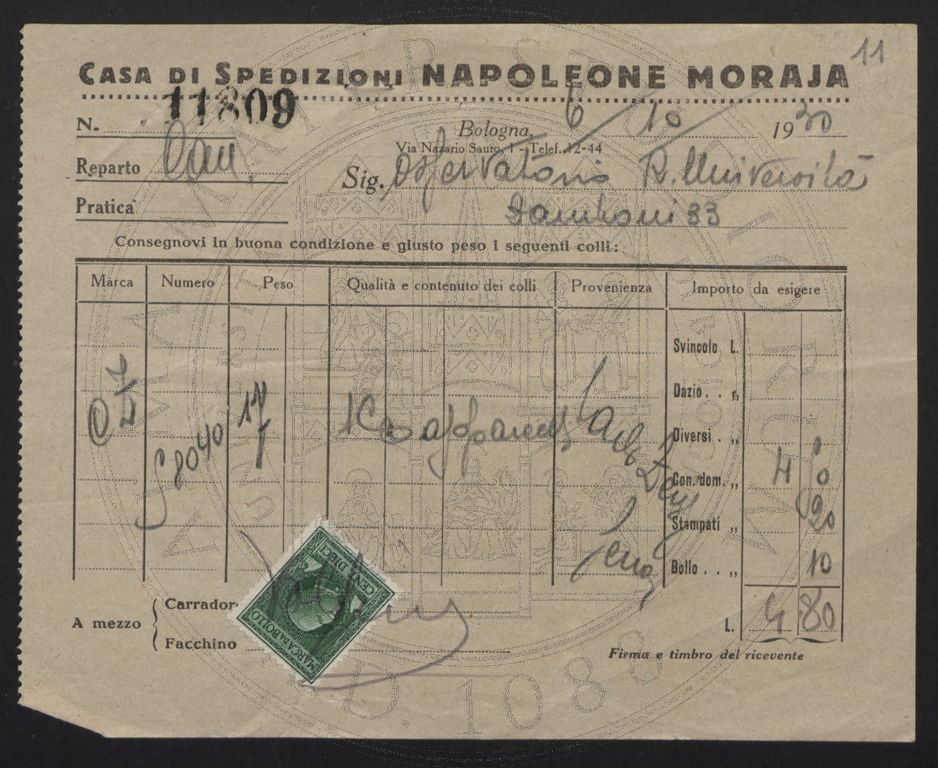 11
CASA DI SPEDIZIONI NAPOLEONE MORAJA
N. 11809
Bologna, 6/10 1930
Via Nazario Sauro, 1 - Telef. 12-44
Reparto Cam.
Sig. Osservatorio R. Università
Pratica
Zamboni 33
Consegnovi in buona condizione e giusto peso i seguenti colli:
Marca Numero Peso Qualità e contenuto dei colli Provenienza Importo da esigere
Svincolo L.
Dazio . . „
Diversi . „
CZ 8040 17 Ka Carlo Zeiss
Con. dom. „ 4
Stampati „ 20
Jena
Bollo . . „ 10
L. 4 80
A mezzo
Carradore
Facchino
MARCA DA BOLLO
Firma e timbro del ricevente
A.D. 1088